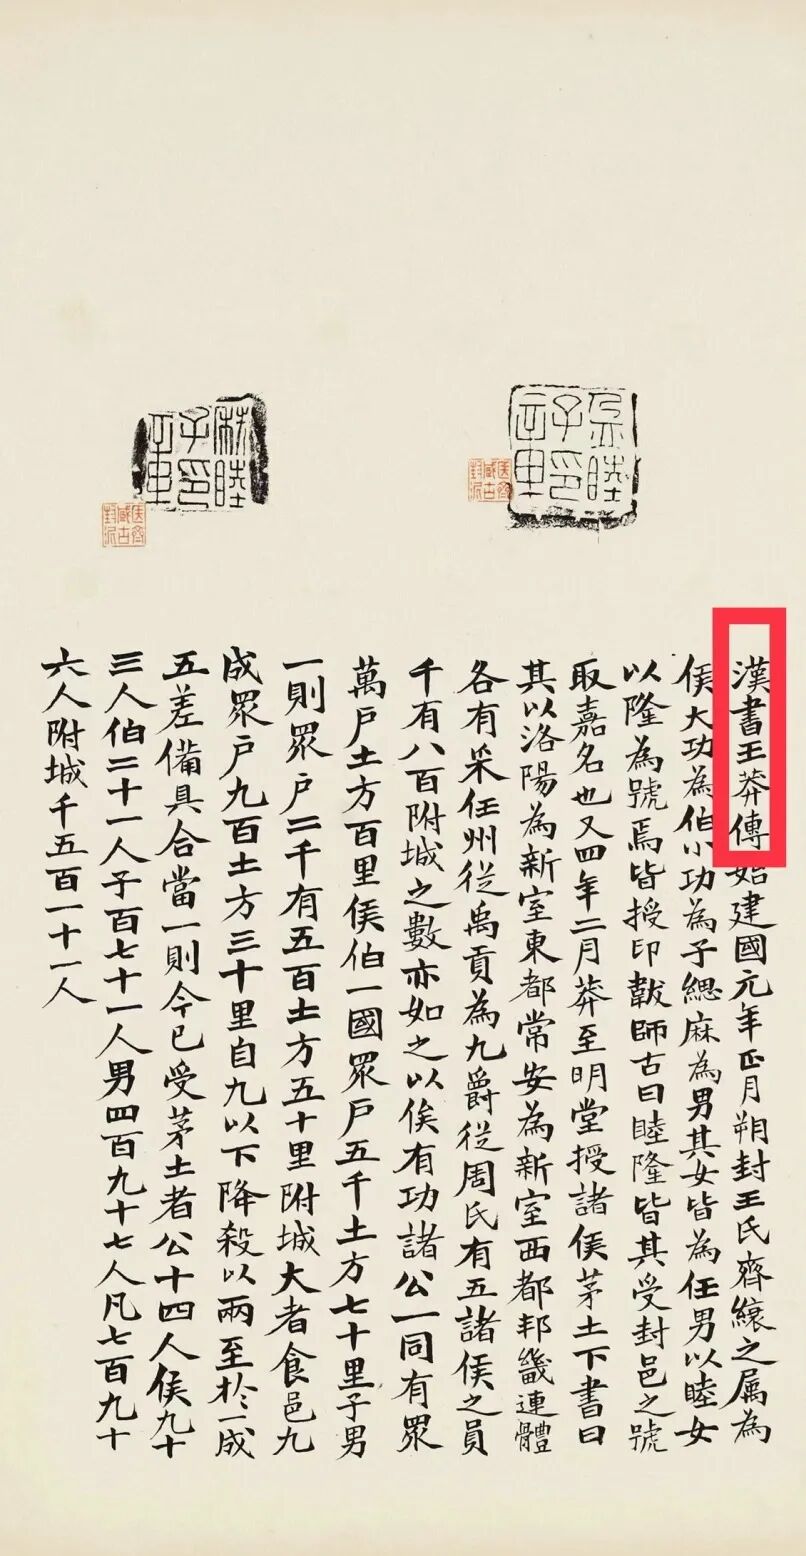 医齊
臧古
封泥
医齊
臧古
封泥
漢書王莽傳始建國元年正月朔封王氏齊縗之属為
侯大功為伯小功為子緦麻為男其女皆為任男以睦女
以隆為號焉皆授印韍師古曰睦隆皆其受封邑之號
取嘉名也又四年二月莽至明堂授諸侯茅土下書曰
其以洛陽為新室東都常安為新室西都邦畿連體
各有采任州從禹貢為九爵從周氏有五諸侯之員
千有八百附城之數亦如之以俟有功諸公一同有眾
萬戶土方百里侯伯一國眾戶五千土方七十里子男
一則眾戶二千有五百土方五十里附城大者食邑九
成眾戶九百土方三十里自九以下降殺以兩至於一成
五差備具合當一則今已受茅土者公十四人侯九十
三人伯二十一人子百七十一人男四百九十七人凡七百九十
六人附城千五百一十一人